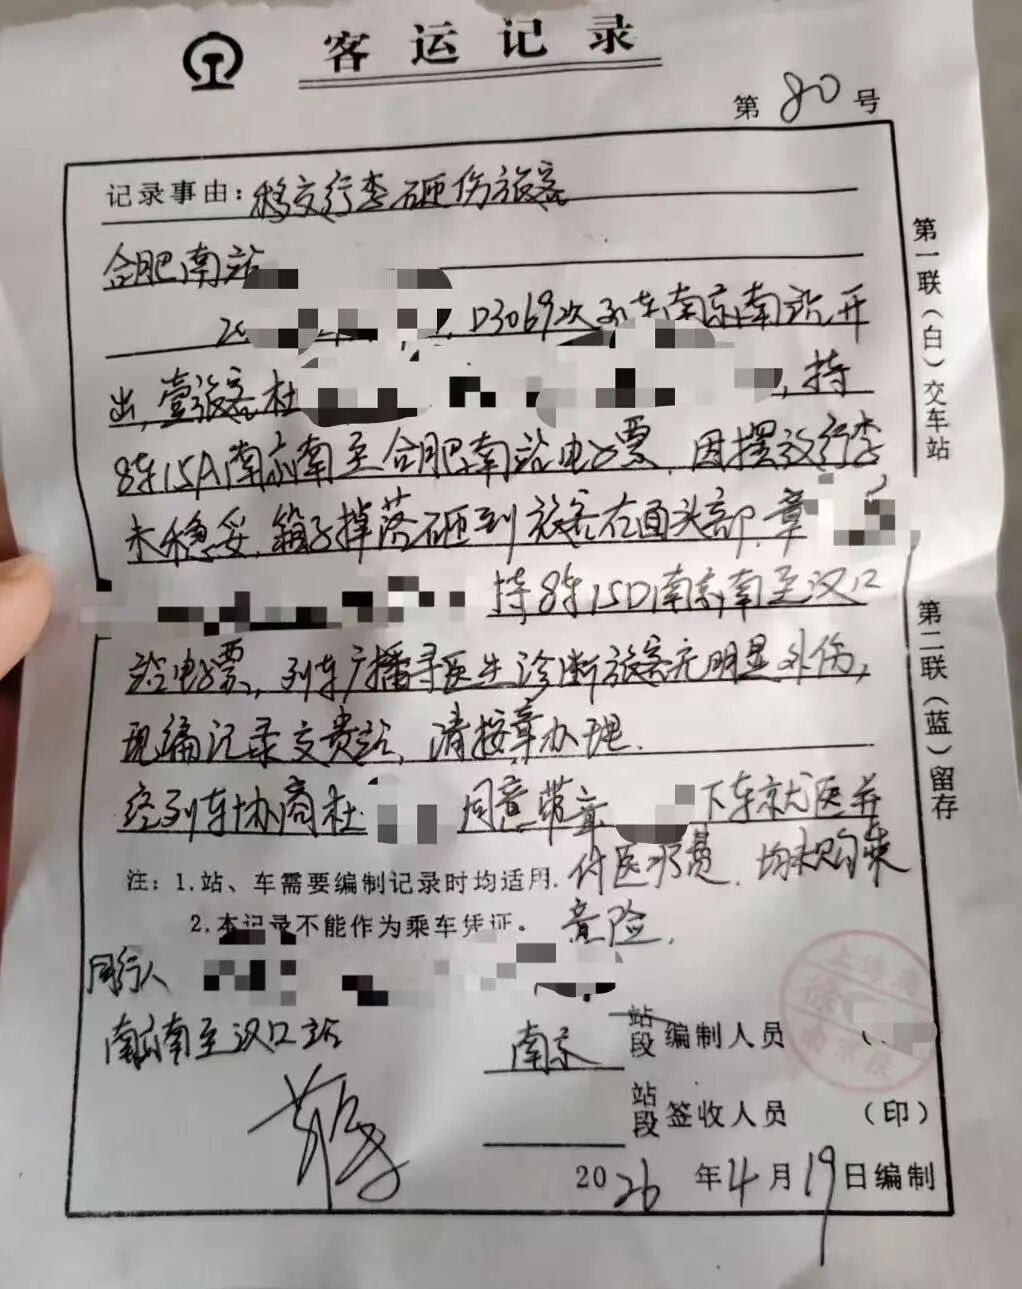 客运记录
第80号
记录事由:移交行李砸伤旅客
合肥南站
20 D3069次列车南京南站开
出,壹旅客杜 ,持
8车15A南京南至合肥南站电子票,因摆放行李
未稳妥,箱子掉落砸到旅客右面头部,章
持8车15D南京南至汉口
站电子票,列车广播寻医生诊断旅客无明显外伤,
现编记录交贵站,请按章办理.
经列车协商杜 同意带章 下车就医并
付医疗费.均未购乘
意险.
注:1.站、车需要编制记录时均适用.
2.本记录不能作为乘车凭证。
同行人
南京南至汉口站
南京 站段 编制人员
站段 签收人员 (印)
2026年4月19日编制
第一联(白)交车站
第二联(蓝)留存
上海局
徐
南京段